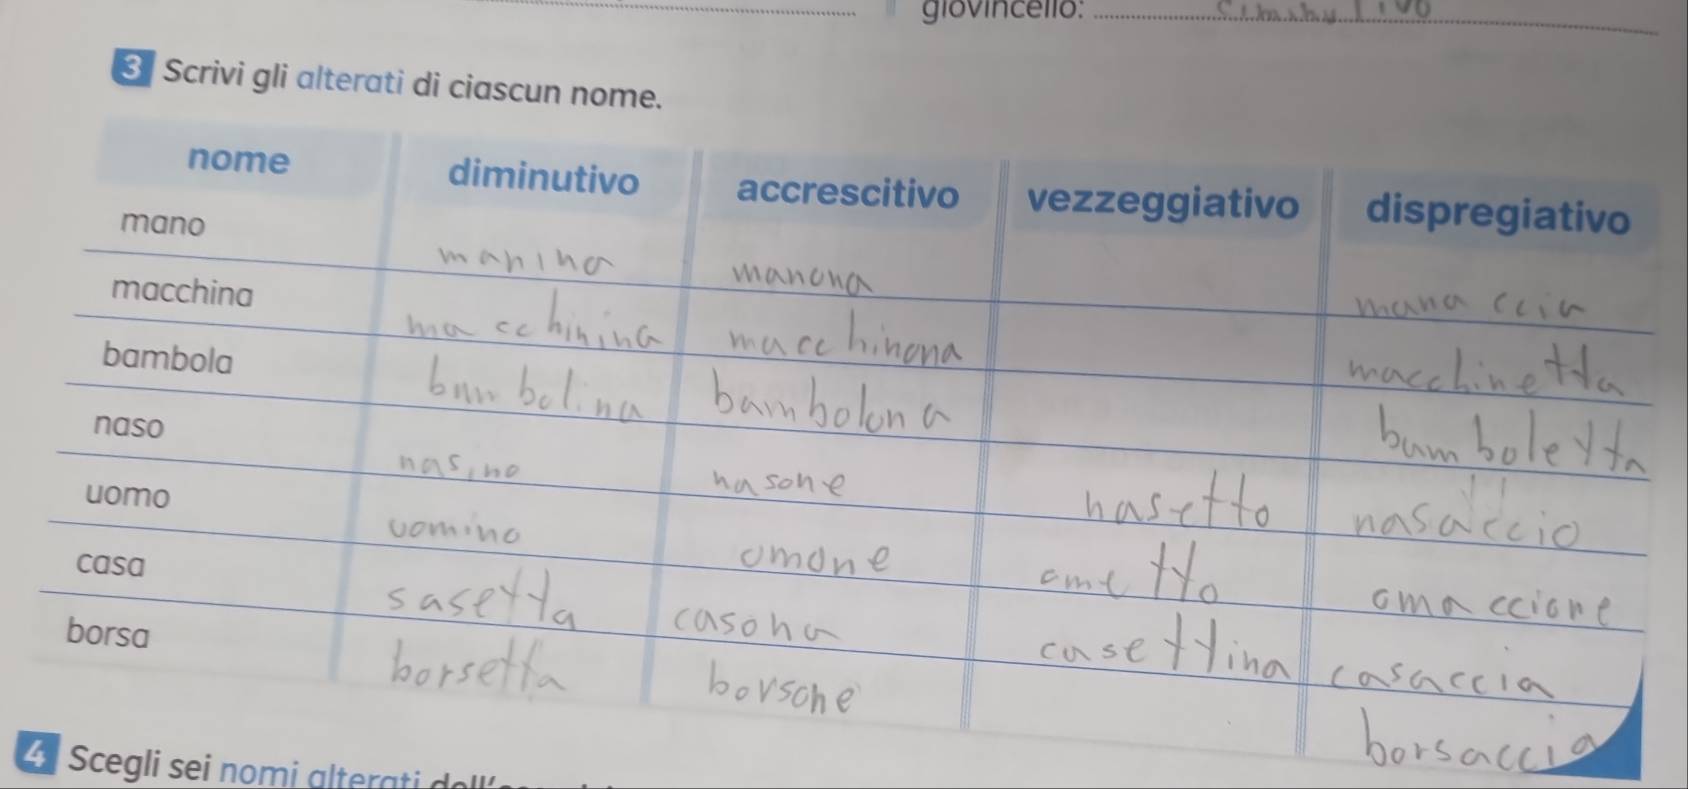 giovincello:
3 Scrivi gli alterati di ciascun nome.
nome diminutivo accrescitivo vezzeggiativo dispregiativo
mano manina manona manaccia
macchina macchinina macchinona macchinetta
bambola bambolina bambolona bamboletta
naso nasino nasone nasetto nasaccio
uomo uomino omone ometto omaccione
casa sasetta casona casettina casaccia
borsa borsetta borsone borsaccia
4 Scegli sei nomi alterati